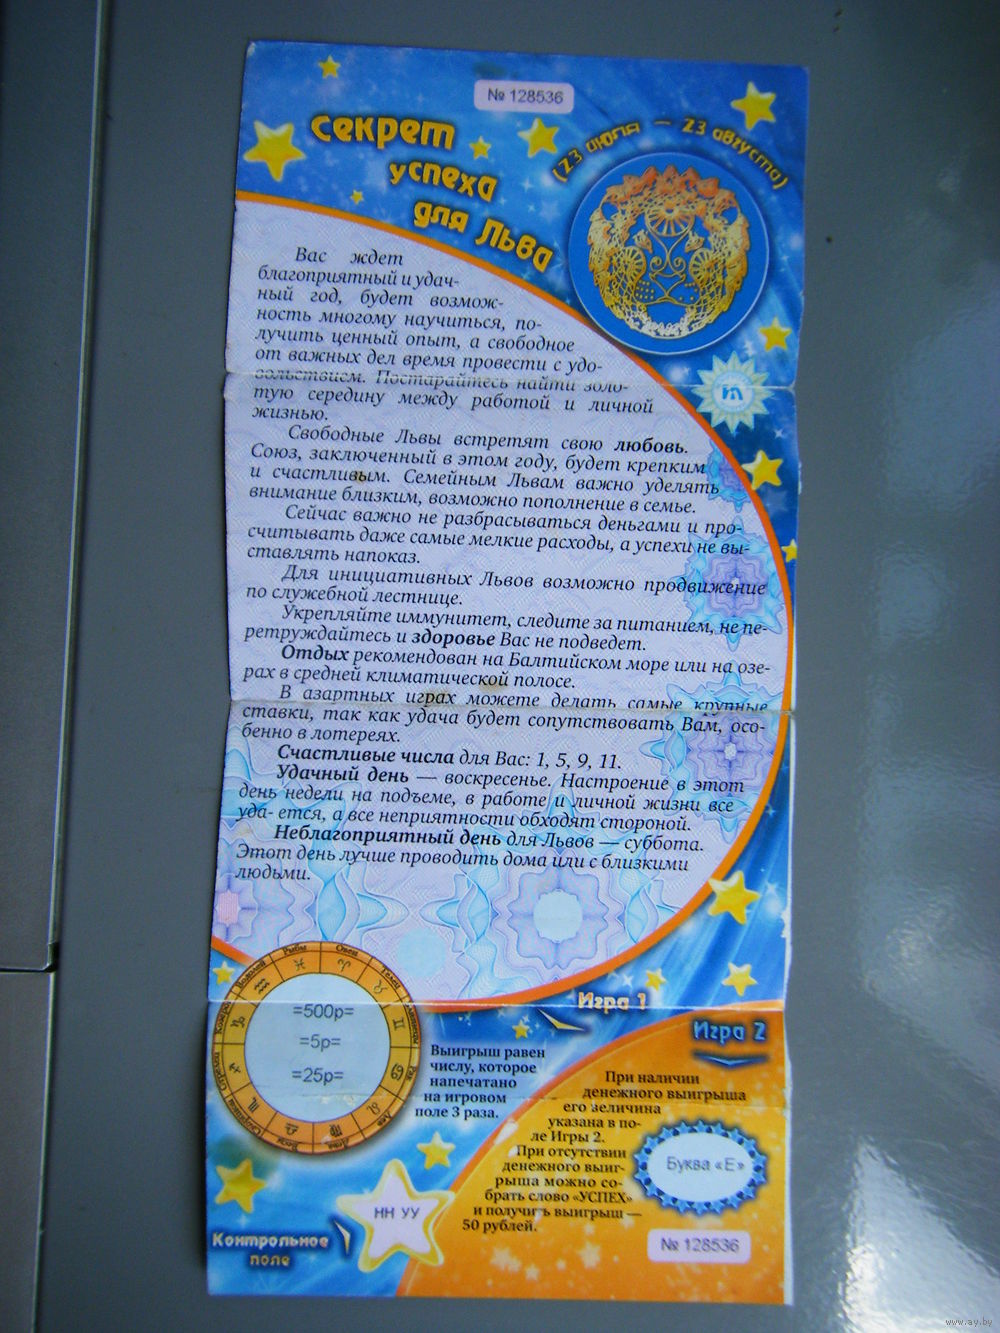 № 128536
Секрет
успеха
для Льва
(23 июля — 23 августа)
Вас ждет
благоприятный и удач-
ный год, будет возмож-
ность многому научиться, по-
лучить ценный опыт, а свободное
от важных дел время провести с удо-
вольствием. Постарайтесь найти золо-
тую середину между работой и личной
жизнью.
Свободные Львы встретят свою любовь.
Союз, заключенный в этом году, будет крепким
и счастливым. Семейным Львам важно уделять
внимание близким, возможно пополнение в семье.
Сейчас важно не разбрасываться деньгами и про-
считывать даже самые мелкие расходы, а успехи не вы-
ставлять напоказ.
Для инициативных Львов возможно продвижение
по служебной лестнице.
Укрепляйте иммунитет, следите за питанием, не пе-
ретруждайтесь и здоровье Вас не подведет.
Отдых рекомендован на Балтийском море или на озе-
рах в средней климатической полосе.
В азартных играх можете делать самые крупные
ставки, так как удача будет сопутствовать Вам, осо-
бенно в лотереях.
Счастливые числа для Вас: 1, 5, 9, 11.
Удачный день — воскресенье. Настроение в этот
день недели на подъеме, в работе и личной жизни все
уда- ется, а все неприятности обходят стороной.
Неблагоприятный день для Львов — суббота.
Этот день лучше проводить дома или с близкими
людьми.
Рыбы
Овен
Телец
Близнецы
Рак
Лев
Дева
Весы
Скорпион
Стрелец
Козерог
Водолей
=500р=
=5р=
=25р=
Игра 1
Выигрыш равен
числу, которое
напечатано
на игровом
поле 3 раза.
Игра 2
При наличии
денежного выигрыша
его величина
указана в по-
ле Игры 2.
При отсутствии
денежного выиг-
рыша можно со-
брать слово «УСПЕХ»
и получить выигрыш —
50 рублей.
Буква «Е»
№ 128536
НН УУ
Контрольное
поле
www.ay.by